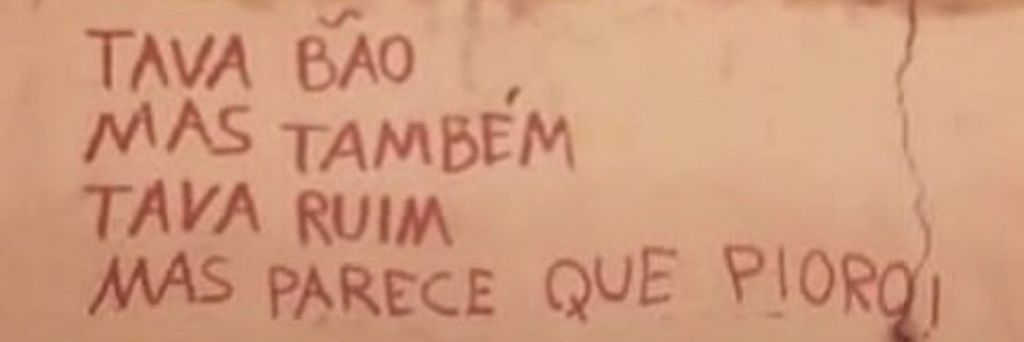 TAVA BÃO
MAS TAMBÉM
TAVA RUIM
MAS PARECE QUE PIOROU